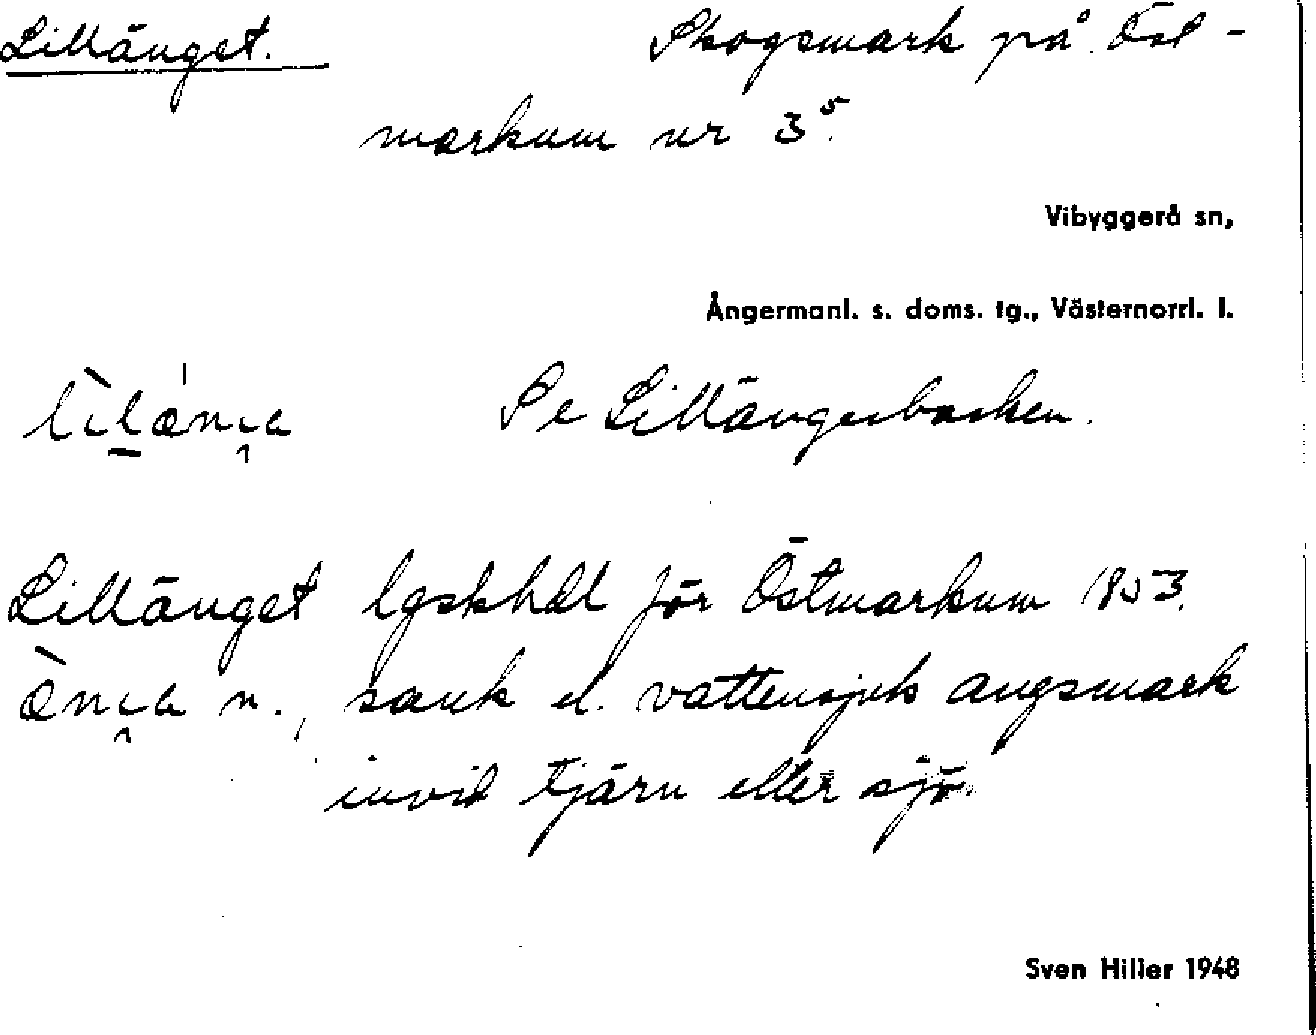 Lillänget. Skogsmark på Öst-
markum nr 3⁵.
Vibyggerå sn,
Ångermanl. s. doms. tg., Västernorrl. l.
Se Lillängesbacken.
Lillänget lgskhdl för Östmarkum 1853.
n., sank el. vattensjuk ängsmark
invid tjärn eller sjö.
Sven Hiller 1948